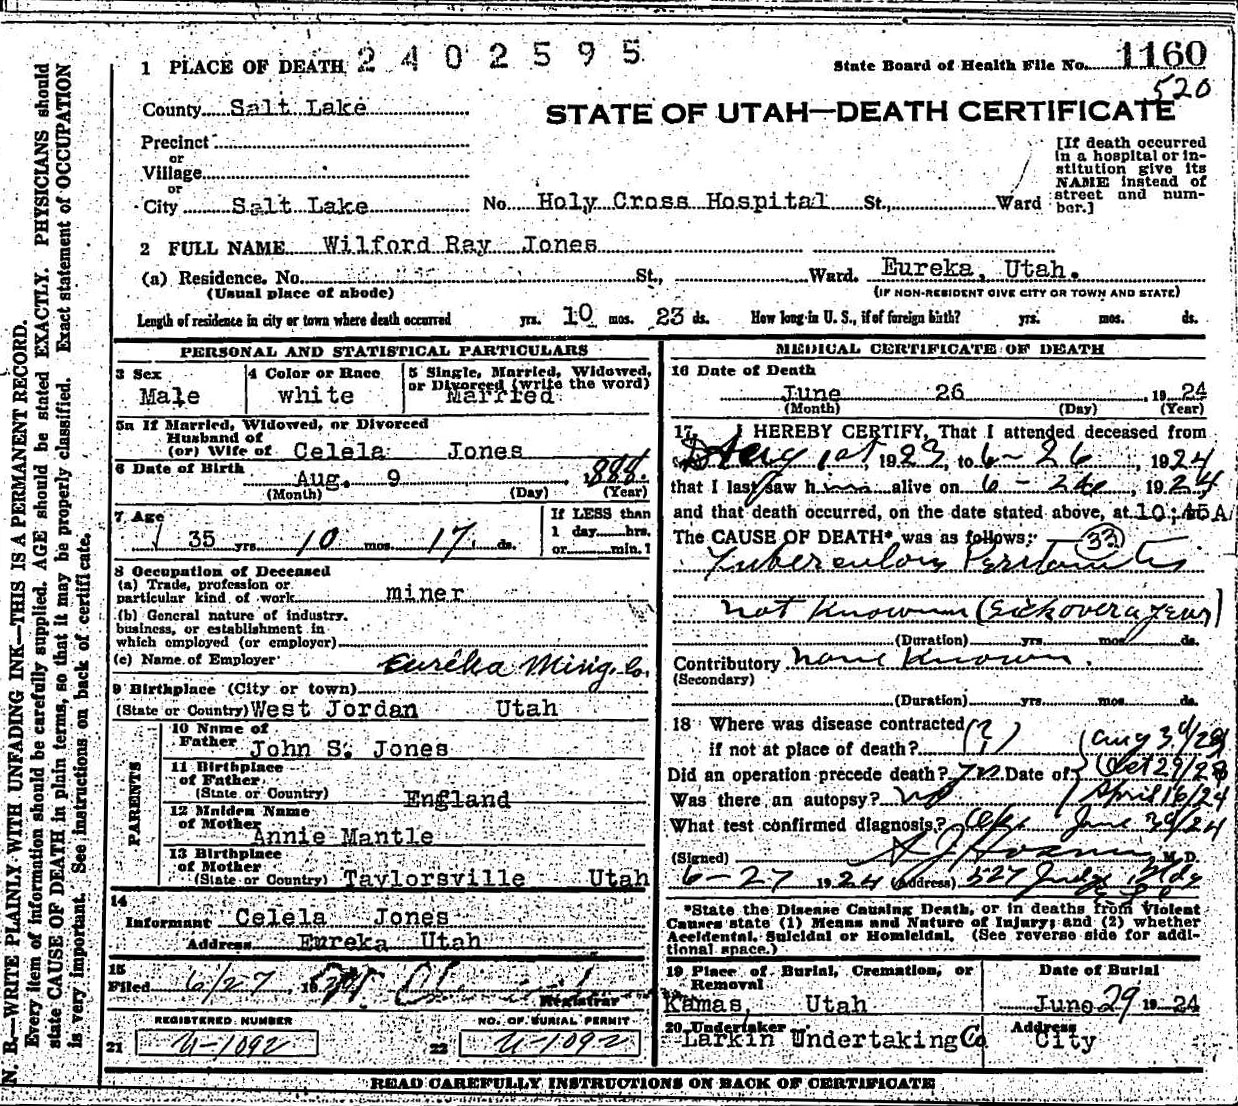 1 PLACE OF DEATH 2 4 0 2 5 9 5
State Board of Health File No. 1160
520
County Salt Lake
STATE OF UTAH—DEATH CERTIFICATE
Precinct
or
Village
or
City Salt Lake No. Holy Cross Hospital St., Ward
[If death occurred
in a hospital or in-
stitution give its
NAME instead of
street and num-
ber.]
2 FULL NAME Wilford Ray Jones
(a) Residence. No. St., Ward. Eureka, Utah.
(Usual place of abode) (IF NON-RESIDENT GIVE CITY OR TOWN AND STATE)
Length of residence in city or town where death occurred yrs. 10 mos. 23 ds. How long in U. S., if of foreign birth? yrs. mos. ds.
PERSONAL AND STATISTICAL PARTICULARS
3 Sex
Male
4 Color or Race
white
5 Single, Married, Widowed,
or Divorced (write the word)
Married
5a If Married, Widowed, or Divorced
Husband of
(or) Wife of Celela Jones
6 Date of Birth
Aug. 9, 1888.
(Month) (Day) (Year)
7 Age
35 yrs. 10 mos. 17 ds.
If LESS than
1 day hrs.
or min.?
8 Occupation of Deceased
(a) Trade, profession or
particular kind of work miner
(b) General nature of industry,
business, or establishment in
which employed (or employer)
(c) Name of Employer Eureka Ming. Co.
9 Birthplace (City or town)
(State or Country) West Jordan Utah
PARENTS
10 Name of
Father John S. Jones
11 Birthplace
of Father
(State or Country) England
12 Maiden Name
of Mother Annie Mantle
13 Birthplace
of Mother
(State or Country) Taylorsville Utah
14
Informant Celela Jones
Address Eureka Utah
15
Filed 6/27 19 24
Registrar
REGISTERED NUMBER NO. OF BURIAL PERMIT
21 U-1092 22 U-1092
MEDICAL CERTIFICATE OF DEATH
16 Date of Death
June 26, 1924
(Month) (Day) (Year)
17 I HEREBY CERTIFY, That I attended deceased from
Aug 1st, 1923, to 6-26, 1924
that I last saw him alive on 6-26, 1924
and that death occurred, on the date stated above, at 10:45A
The CAUSE OF DEATH* was as follows: 33
Tuberculous Peritonitis
not known (Sick over a year)
(Duration) yrs. mos. ds.
Contributory none known.
(Secondary)
(Duration) yrs. mos. ds.
18 Where was disease contracted
if not at place of death? (?)
Did an operation precede death? yes Date of Aug 3d/23
Oct 29/23
April 16/24
June 3d/24
Was there an autopsy? no
What test confirmed diagnosis?
(Signed) M. D.
6-27 1924 (Address) 527 Judge Bldg
*State the Disease Causing Death, or in deaths from Violent
Causes state (1) Means and Nature of Injury; and (2) whether
Accidental, Suicidal or Homicidal. (See reverse side for addi-
tional space.)
19 Place of Burial, Cremation, or
Removal
Kamas, Utah
Date of Burial
June 29 19 24
20 Undertaker
Larkin Undertaking Co
Address
City
READ CAREFULLY INSTRUCTIONS ON BACK OF CERTIFICATE
N. B.—WRITE PLAINLY WITH UNFADING INK—THIS IS A PERMANENT RECORD.
Every item of information should be carefully supplied. AGE should be stated EXACTLY. PHYSICIANS should
state CAUSE OF DEATH in plain terms, so that it may be properly classified. Exact statement of OCCUPATION
is very important. See instructions on back of certificate.